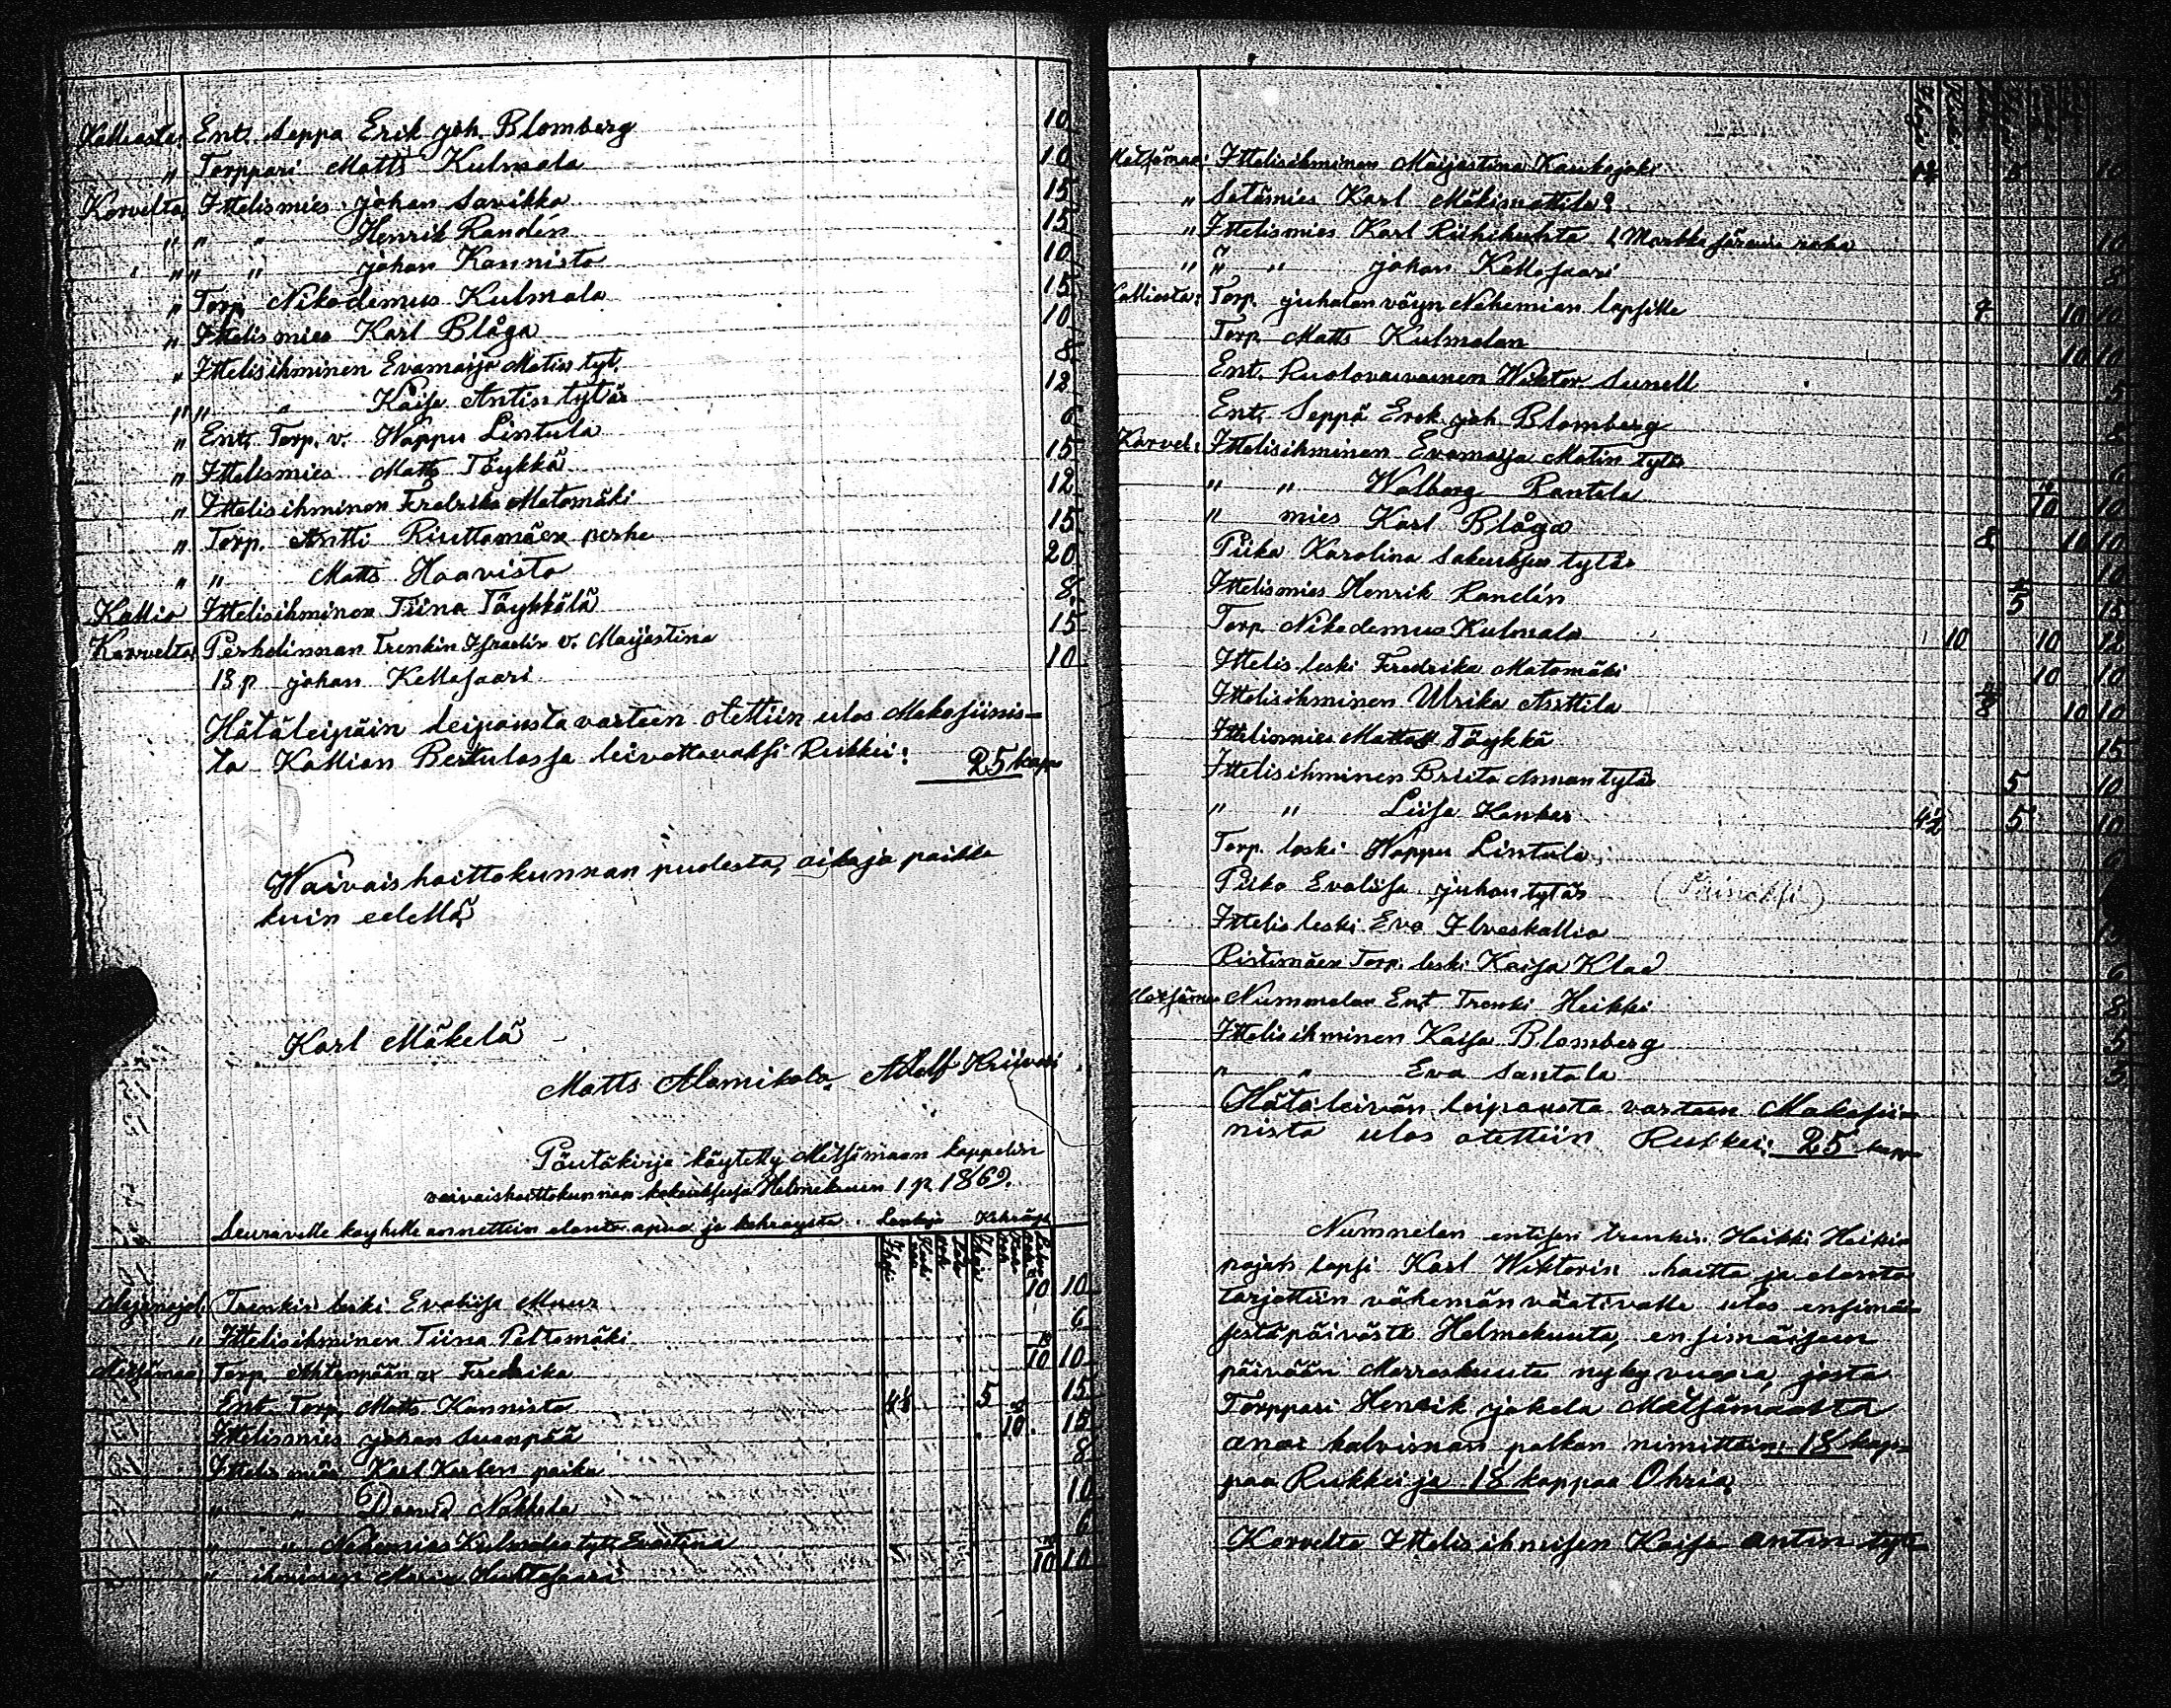 Kalliosta: Ent. Seppa Erik Joh. Blomberg 10
" Torppari Matts Kulmala 10
Korvelta Ittelismies Johan Savikko 15
" " " Henrik Randén 15
" " " Johan Kannisto 10
" Torp. Nikodemus Kulmala 15
" Ittelismies Karl Blåga 10
" Ittelisihminen Evamaija Matin tyt. 8
" " " Kaisa Antin tytär 12
" Ent. Torp. v. Wappu Lintula 6
" Ittelismies Matts Täykkä 15
" Ittelisihminen Fredrika Matomäki 12
" Torp. Antti Riuttamäen perhe 15
" " Matts Haavisto 20
Kallio Ittelisihminen Tiina Täykkälä 8
Korvelta Perhelinnan Trenkin Israelin v. Maijastina 15
13 p Johan Kellosaari 10
Hätäleipäin leipausta varten otettiin ulos Makasiinis-
ta Kallian Bertulassa leivottavaksi Rukkei: 25 kapp
Waivaishoittokunnan puolesta, aika ja paikka
kuin edellä
Karl Mäkelä
Matts Alamikola Adolf
Pöutäkirja käytetty Metsämaan kappelin
vaivaishoittokunnan kokouksessa Helmekuun 1 p. 1869.
Seuraville köyhille annettiin elanto apua ja kehräystä. Lankoja Kehräys
Trenkin leski Evaliisa Muur 10 10
" Ittelisihminen Tiina Peltomäki 6
Metsämaa Torp. Ahtenpään Fredrika 10 10
Ent. Torp. Matts Kannisto 5 15
Ittelismies Johan Suonpää 10 15
Ittelis mies Karl 8
" " David Nokkala 10
" " Nehemias Kulmalan tyt. Evastina 6
" ihminen Huhtasaari 10 10
Metsämaa: Ittelisihminen Maijastina Kaukojoki 5 10
" Sotämies Karl Mäkimattila
" Ittelismies Karl Riihihuhta 1 Markka raha 10
" " " Johan Kellosaari 8
Kalliosta: Torp. Juhalan vävyn Nehemian lapsille 4 10 10
Torp. Matts Kulmalan 10 10
Ent. Ruotovaivainen Wiktor Sunell 5
Ent. Seppä Erik Joh Blomberg 8
Korvel: Ittelisihminen Evamaija Matin tytär 6
" " Walborg Rantala 10 10
" mies Karl Blåga 8 10 10
Piika Karolina Sakeuksen tytär 10
Ittelismies Henrik Randén 5 15
Torp. Nikodemus Kulmala 10 10 12
Ittelis leski Fredrika Matomäki 10 10
Ittelisihminen Ulrika Anttila 8 10 10
Ittelismies Matts Täykkä 15
Ittelisihminen Briita Annan tytär 5 10
" " Liisa Kankar 5 10
Torp. leski Wappu Lintula 6
Piika Evaliisa Juhan tytär
Ittelis leski Eva Ilveskallio
Ristimäen Torp. leski Kaisa Klad 6
Metsämaa Nummelan Ent. Trenki Heikki 8
Ittelisihminen Kaisa Blomberg 5
" " Eva Santala 5
Hätäleivän leipausta varten Makasii-
nista ulos otettiin Rukkei: 25 kapp
Nummelan entisen trenkin Heikki Heikin
pojan lapsi Karl Wiktorin hoitto ja elanto
tarjottiin vähemän vaativalle ulos ensimäi-
sestä päivästä Helmekuuta, ensimäiseen
päivään Marraskuuta nyky vuonna, josta
Torppari Henrik Jokela Metsämaalta
anoi halvimman palkan nimittäin: 18 kap-
paa Rukkei ja 18 kappaa Ohria.
Korvelta Ittelisihmisen Kaisa Antin tyt